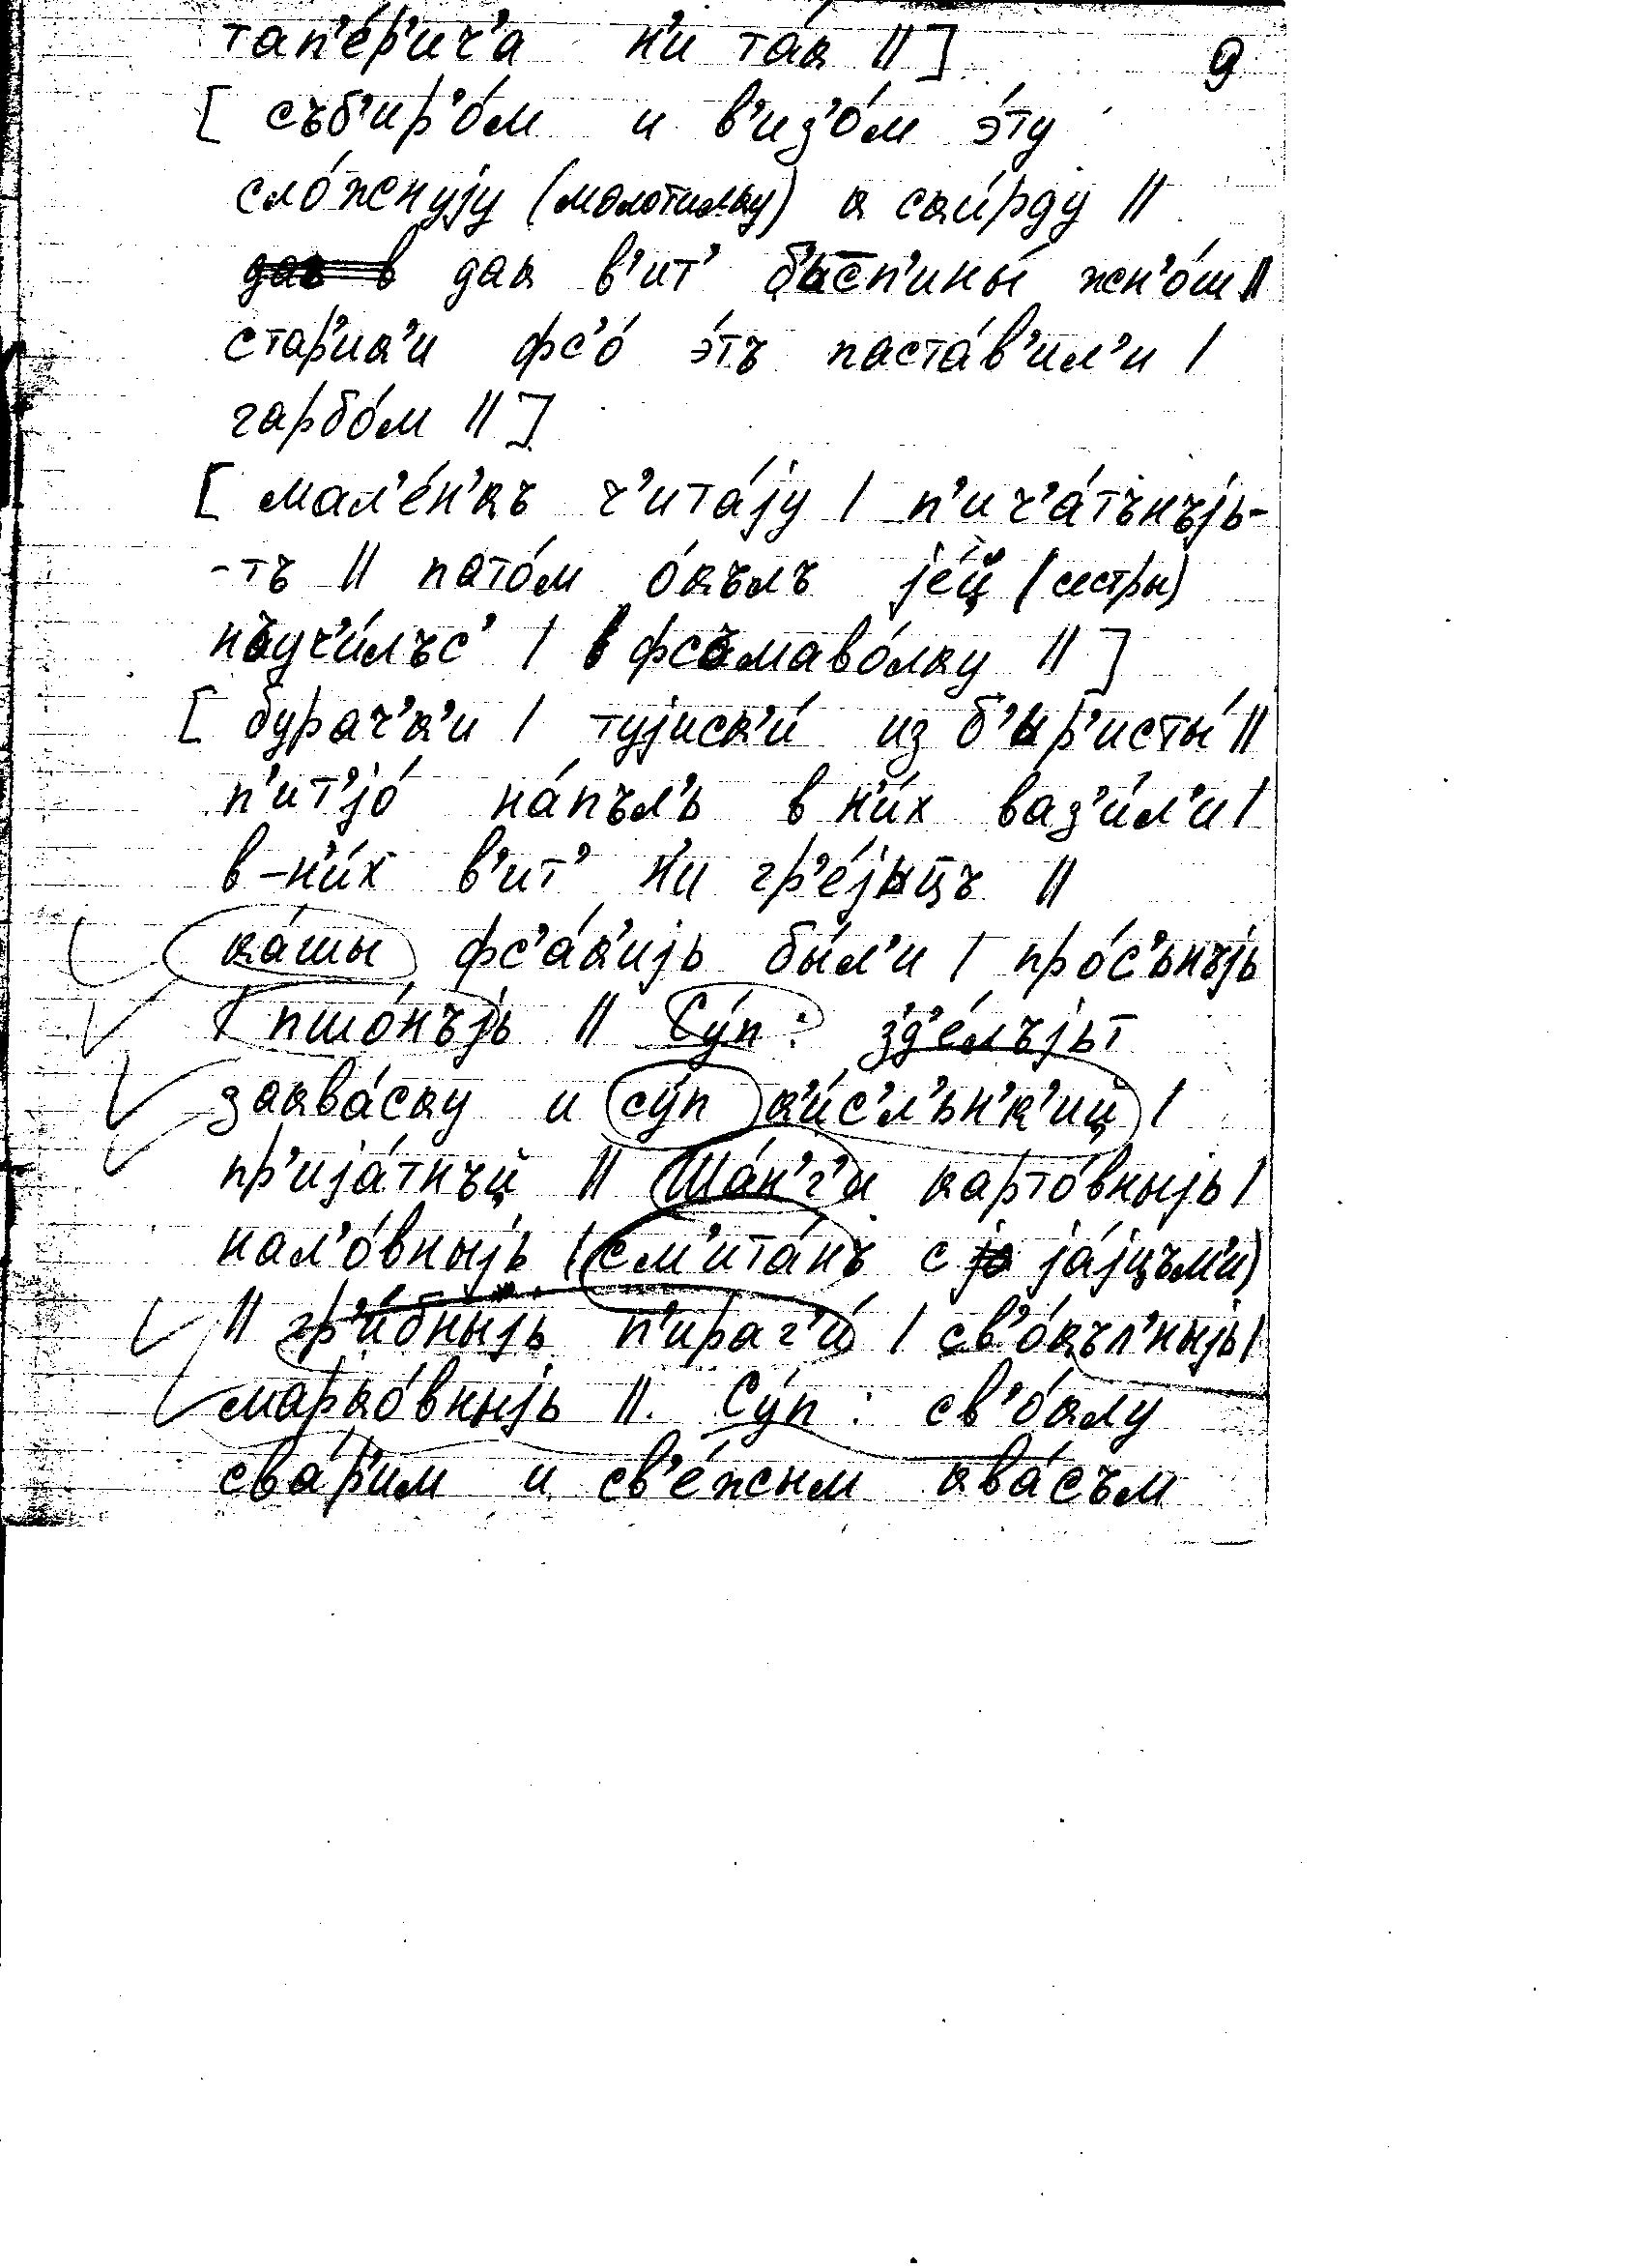 тап'е́р'ич'а н'и та́к || ] 9
[ съб'ир'о́м и в'из'о́м э́ту
сло́жнуjу (молотилку) к ски́рду ||
дак в'ит' бъсп'ины́ жн'о́ш ||
стар'ик'и фс'о́ э́тъ паста́в'ил'и |
гарбо́м || ]
[ мал'е́н'къ ч'ита́jу | п'ич'а́тънъjь-
-тъ || пато́м о́кълъ jе́й (сестры)
пъуч'и́лъс' | фсъмаво́лку || ]
[ бурач'к'и | туjиск'и́ из б'ьр'исты́ ||
п'ит'jо́ на́пъл'ь в н'и́х ваз'и́л'и |
в-н'и́х в'ит' н'и гр'е́jьцъ ||
ка́шы фс'а́к'иjь бы́л'и | про́с'ьнъjь
| пшо́нъjь || Су́п : зд'е́лъjьт
заква́ску и су́п к'и́с'л'ьн'к'иц |
пр'иjа́тнъй || Ша́н'г'и карто́вныjь |
нал'о́вныjь (см'ита́нъ с jа́jцъм'и)
|| гр'и́бныjь п'ираг'и́ | св'о́къл'ныjь |
марко́вныjь || Су́п : св'о́клу
сва́р'им и св'е́жым ква́съм